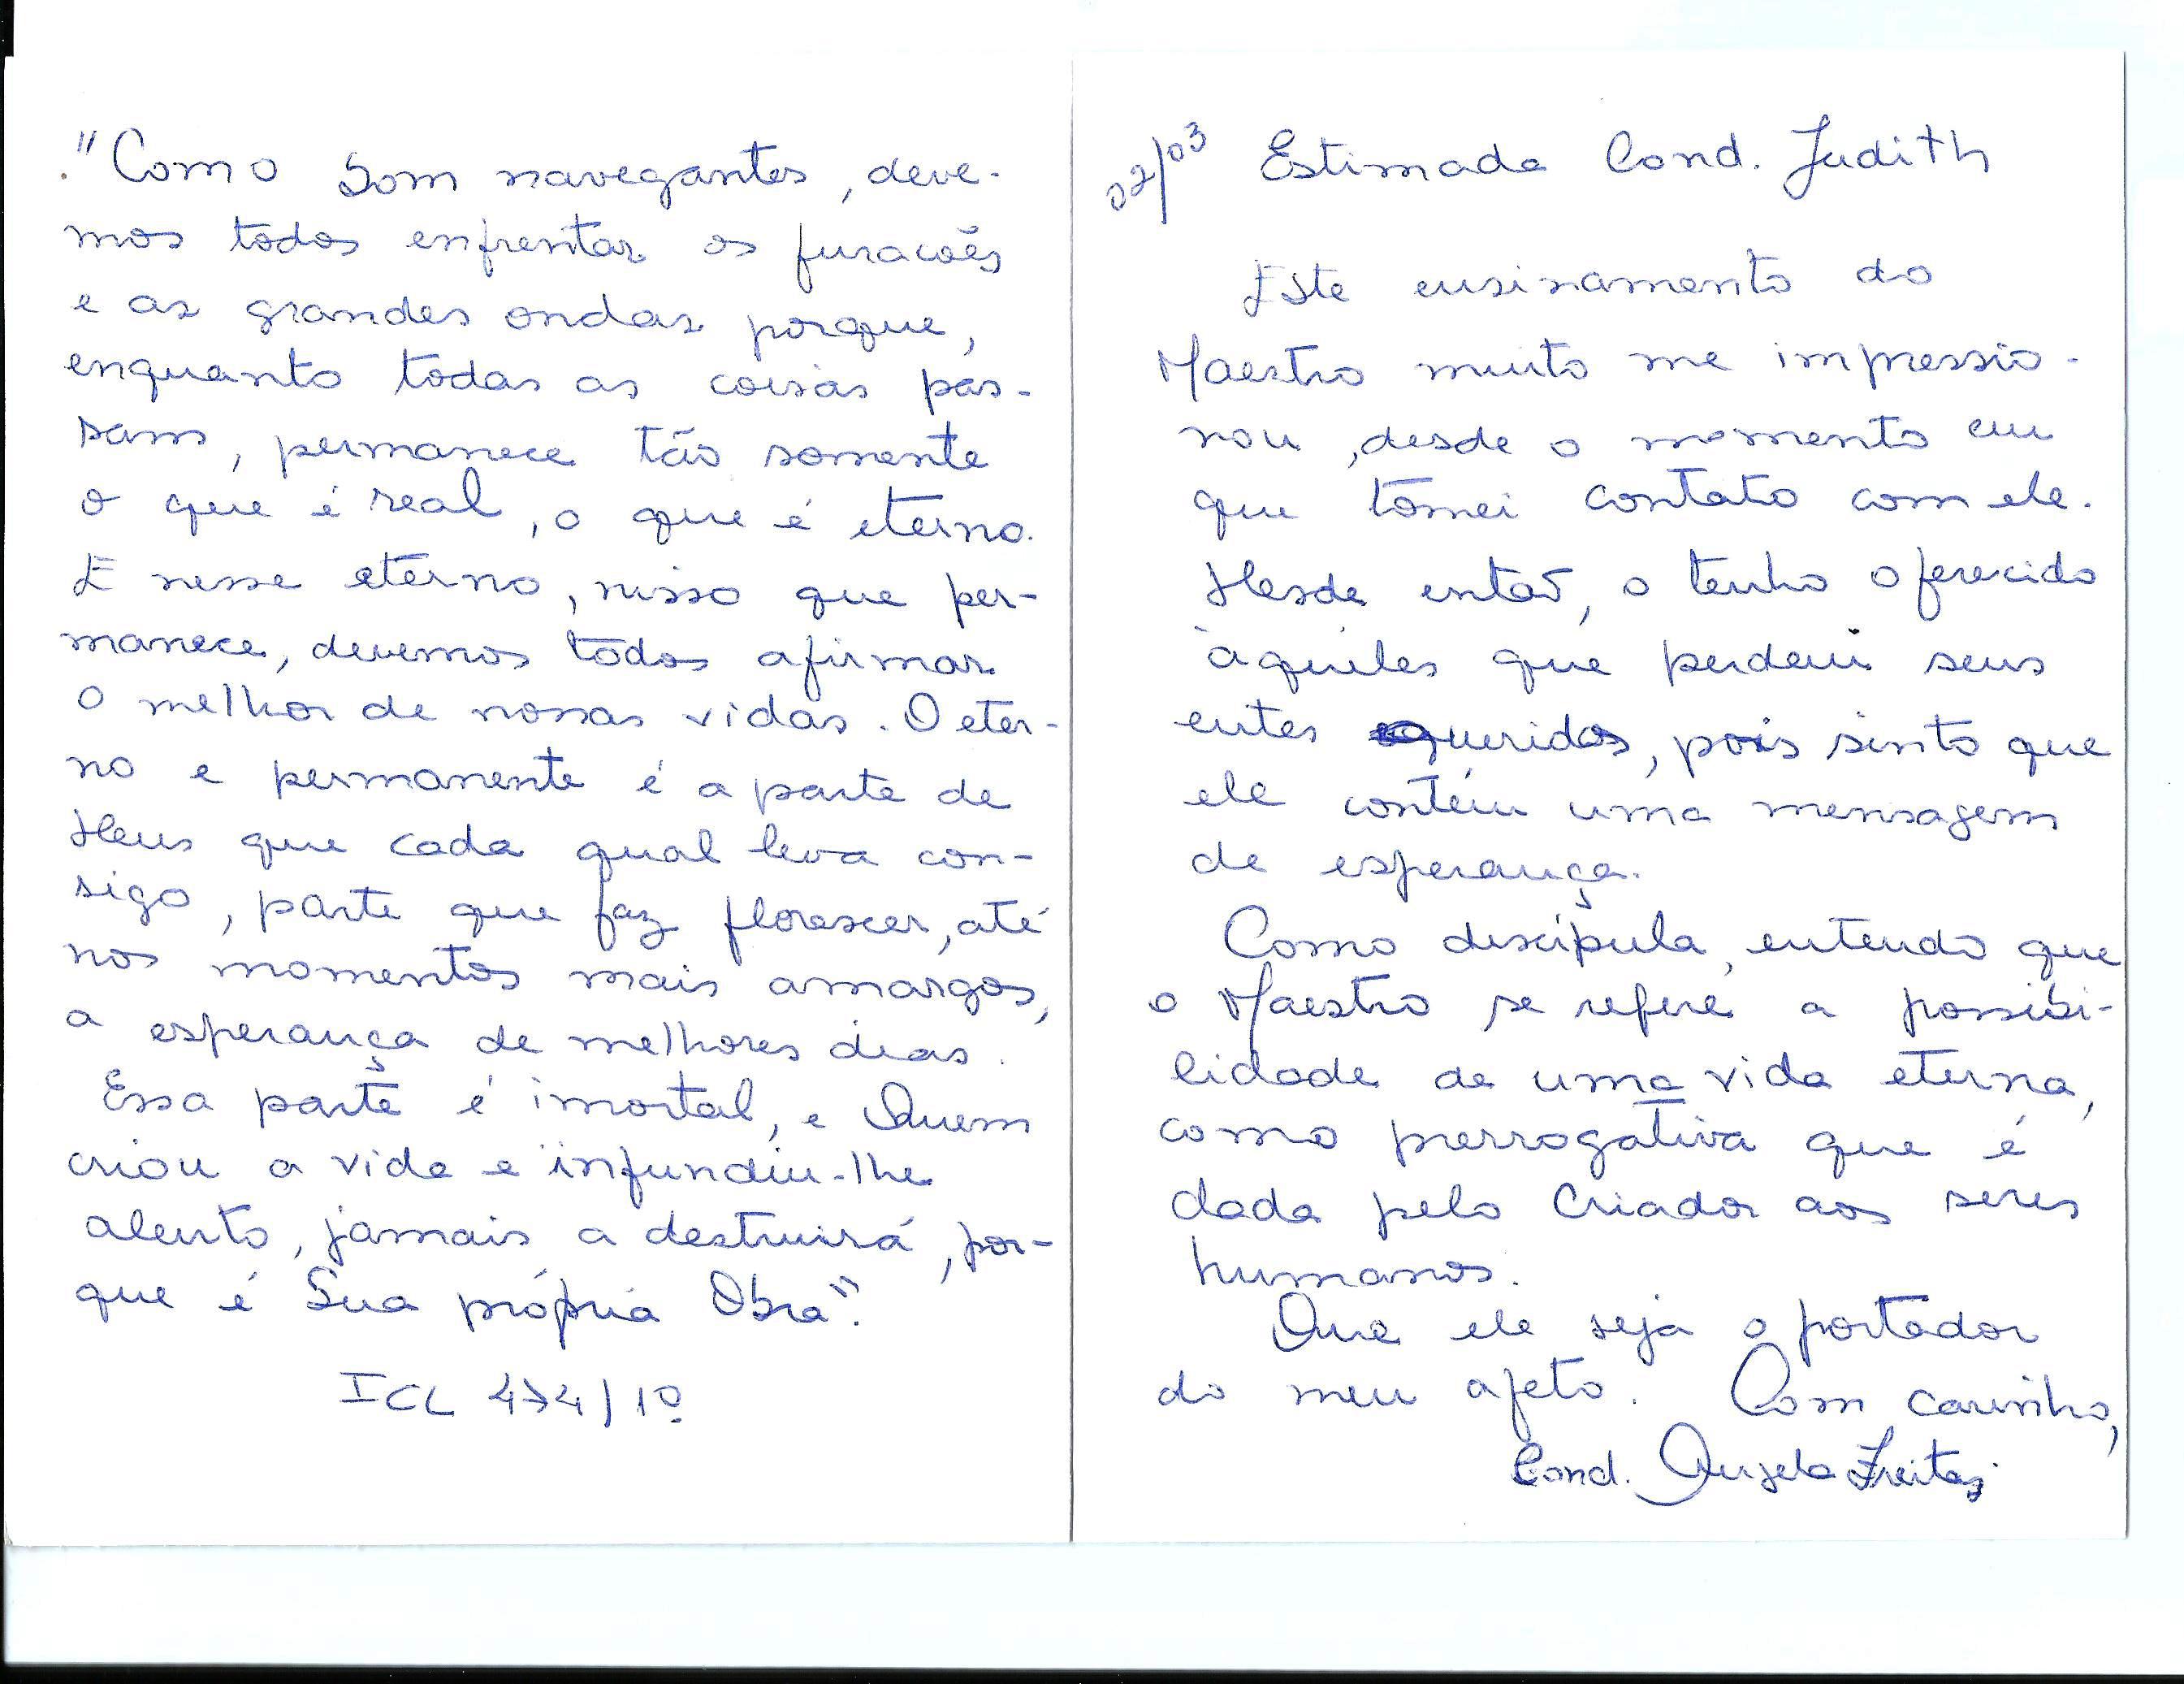 "Como bom navegantes, deve-
mos todos enfrentar os furacões
e as grandes ondas porque,
enquanto todas as coisas pas-
sam, permanece tão somente
o que é real, o que é eterno.
E nesse eterno, nisso que per-
manece, devemos todos afirmar
o melhor de nossas vidas. O eter-
no e permanente é a parte de
Deus que cada qual leva con-
sigo, parte que faz florescer, até
nos momentos mais amargos,
a esperança de melhores dias.
Essa parte é imortal, e Quem
criou a vida e infundiu-lhe
alento, jamais a destruirá, por-
que é Sua própria Obra".
ICL 474/1º
02/03 Estimada Cond. Judith
Este ensinamento do
Maestro muito me impressio-
nou, desde o momento em
que tomei contato com ele.
Desde então, o tenho oferecido
àqueles que perdem seus
entes queridos, pois sinto que
ele contém uma mensagem
de esperança.
Como discípula, entendo que
o Maestro se refere a possibi-
lidade de uma vida eterna,
como prerrogativa que é
dada pelo Criador aos seres
humanos.
Que ele seja o portador
do meu afeto. Com carinho,
Cond. Angela Freitas